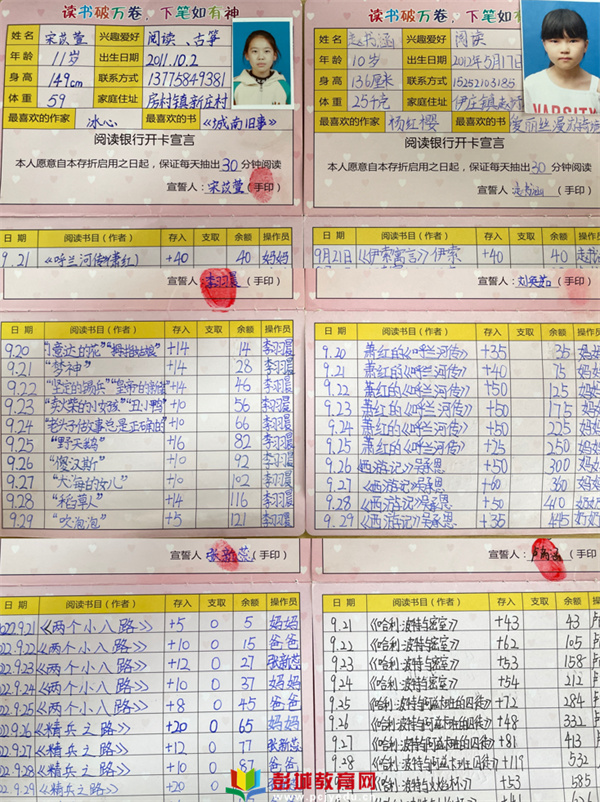 读书破万卷，下笔如有神
姓名 宋苡萱 兴趣爱好 阅读、古筝
年龄 11岁 出生日期 2011.10.2
身高 149cm 联系方式
体重 59 家庭住址
最喜欢的作家 冰心 最喜欢的书 《城南旧事》
阅读银行开卡宣言
本人愿意自本存折启用之日起，保证每天抽出30分钟阅读
宣誓人：宋苡萱（手印）
日期 阅读书目（作者） 存入 支取 余额 操作员
9.21 《呼兰河传》(萧红) +40 40 妈妈
读书破万卷，下笔如有神
兴趣爱好 阅读
年龄 10岁 出生日期 2012年5月17日
身高 136厘米 联系方式
体重 25千克 家庭住址
最喜欢的作家 杨红樱 最喜欢的书
阅读银行开卡宣言
本人愿意自本存折启用之日起，保证每天抽出30分钟阅读
宣誓人： （手印）
日期 阅读书目（作者） 存入 支取 余额 操作员
9月21日 《伊索寓言》伊索 +40 40
宣誓人：李羽晨（手印）
日期 阅读书目（作者） 存入 支取 余额 操作员
9.20 "意达的花" "拇指姑娘" +14 14 李羽晨
9.21 "梦神" +14 28 李羽晨
9.22 "坚定的锡兵" +14 46 李羽晨
9.23 "卖火柴的小女孩" "丑小鸭" +10 56 李羽晨
9.24 "老头子做事总是正确的" +10 66 李羽晨
9.25 "野天鹅" +16 82 李羽晨
9.26 "傻汉斯" +10 92 李羽晨
9.27 "大海的女儿" +10 102 李羽晨
9.28 "稻草人" +14 116 李羽晨
9.29 "吹泡泡" +5 121 李羽晨
宣誓人： （手印）
日期 阅读书目（作者） 存入 支取 余额 操作员
9.20 萧红的《呼兰河传》 +35 35 妈妈
9.21 萧红的《呼兰河传》 +40 75 妈妈
9.22 萧红的《呼兰河传》 +50 125 妈妈
9.23 萧红的《呼兰河传》 +50 175 妈妈
9.24 萧红的《呼兰河传》 +50 225 妈妈
9.25 萧红的《呼兰河传》 +25 250 妈妈
9.26 《西游记》吴承恩 +50 300 妈妈
9.27 《西游记》吴承恩 +60 360
9.28 《西游记》吴承恩 +50 410 奶奶
9.29 《西游记》吴承恩 +35 445 奶奶
宣誓人：张新蕊（手印）
日期 阅读书目（作者） 存入 支取 余额 操作员
022.9.21 《两个小八路》 +5 0 5 妈妈
022.9.22 《两个小八路》 +10 0 15 爸爸
022.9.23 《两个小八路》 +12 0 27 张新蕊
022.9.24 《两个小八路》 +10 0 37 妈妈
022.9.25 《两个小八路》 +8 0 45 爸爸
022.9.26 《精兵之路》 +20 0 65 妈妈
022.9.27 《精兵之路》 +12 0 77 张新蕊
022.9.28 《精兵之路》 +10 0 87 爸爸
022.9.29 《精兵之路》 +20 0
宣誓人： （手印）
日期 阅读书目（作者） 存入 支取 余额 操作员
9.21 《哈利·波特与密室》 +43 43
9.22 《哈利·波特与密室》 +62 105
9.23 《哈利·波特与密室》 +53 158
9.24 《哈利·波特与密室》 +54 212
9.25 《哈利·波特与阿兹卡班的囚徒》 +72 284
9.26 《哈利·波特与阿兹卡班的囚徒》 +48 332
9.27 《哈利·波特与阿兹卡班的囚徒》 +81 413
9.28 《哈利·波特与阿兹卡班的囚徒》 +119 532
《哈利·波特与火焰杯》 +53 585
彭城教育网